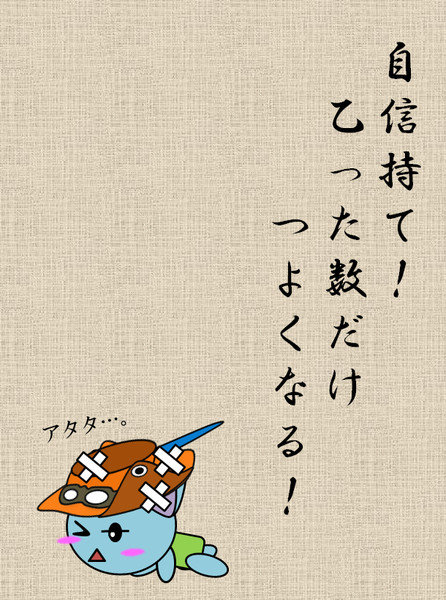 自信持て！
乙った数だけ
つよくなる！
アタタ…。